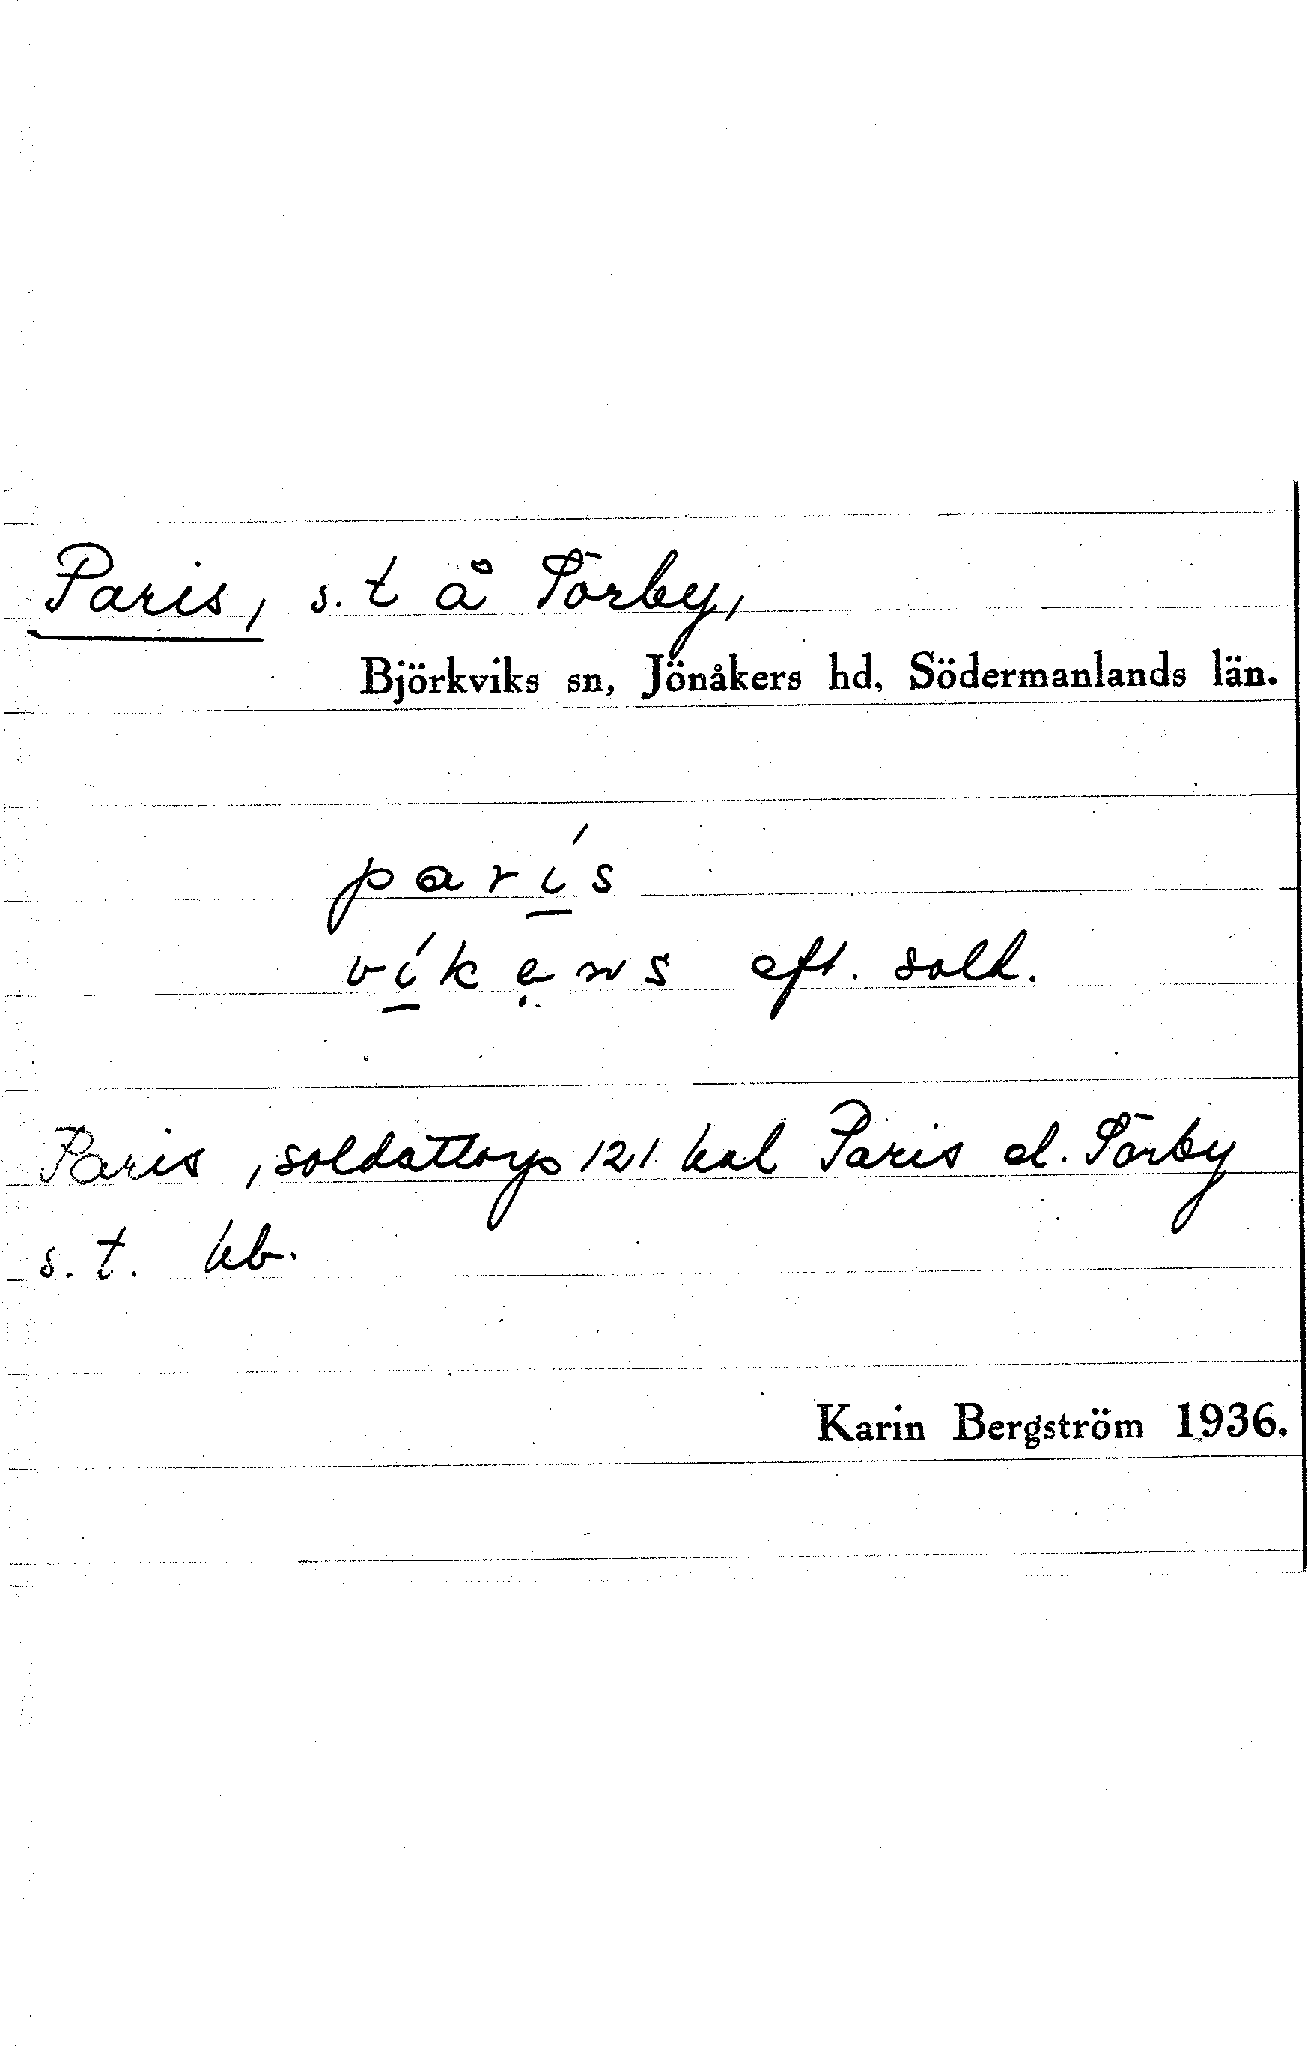 Paris, s.t å Törby,
Björkviks sn, Jönåkers hd, Södermanlands län.
parís
víkens eft. sold.
Paris, soldattorp 121 kal Paris el. Törby
s.t. kb.
Karin Bergström 1936.